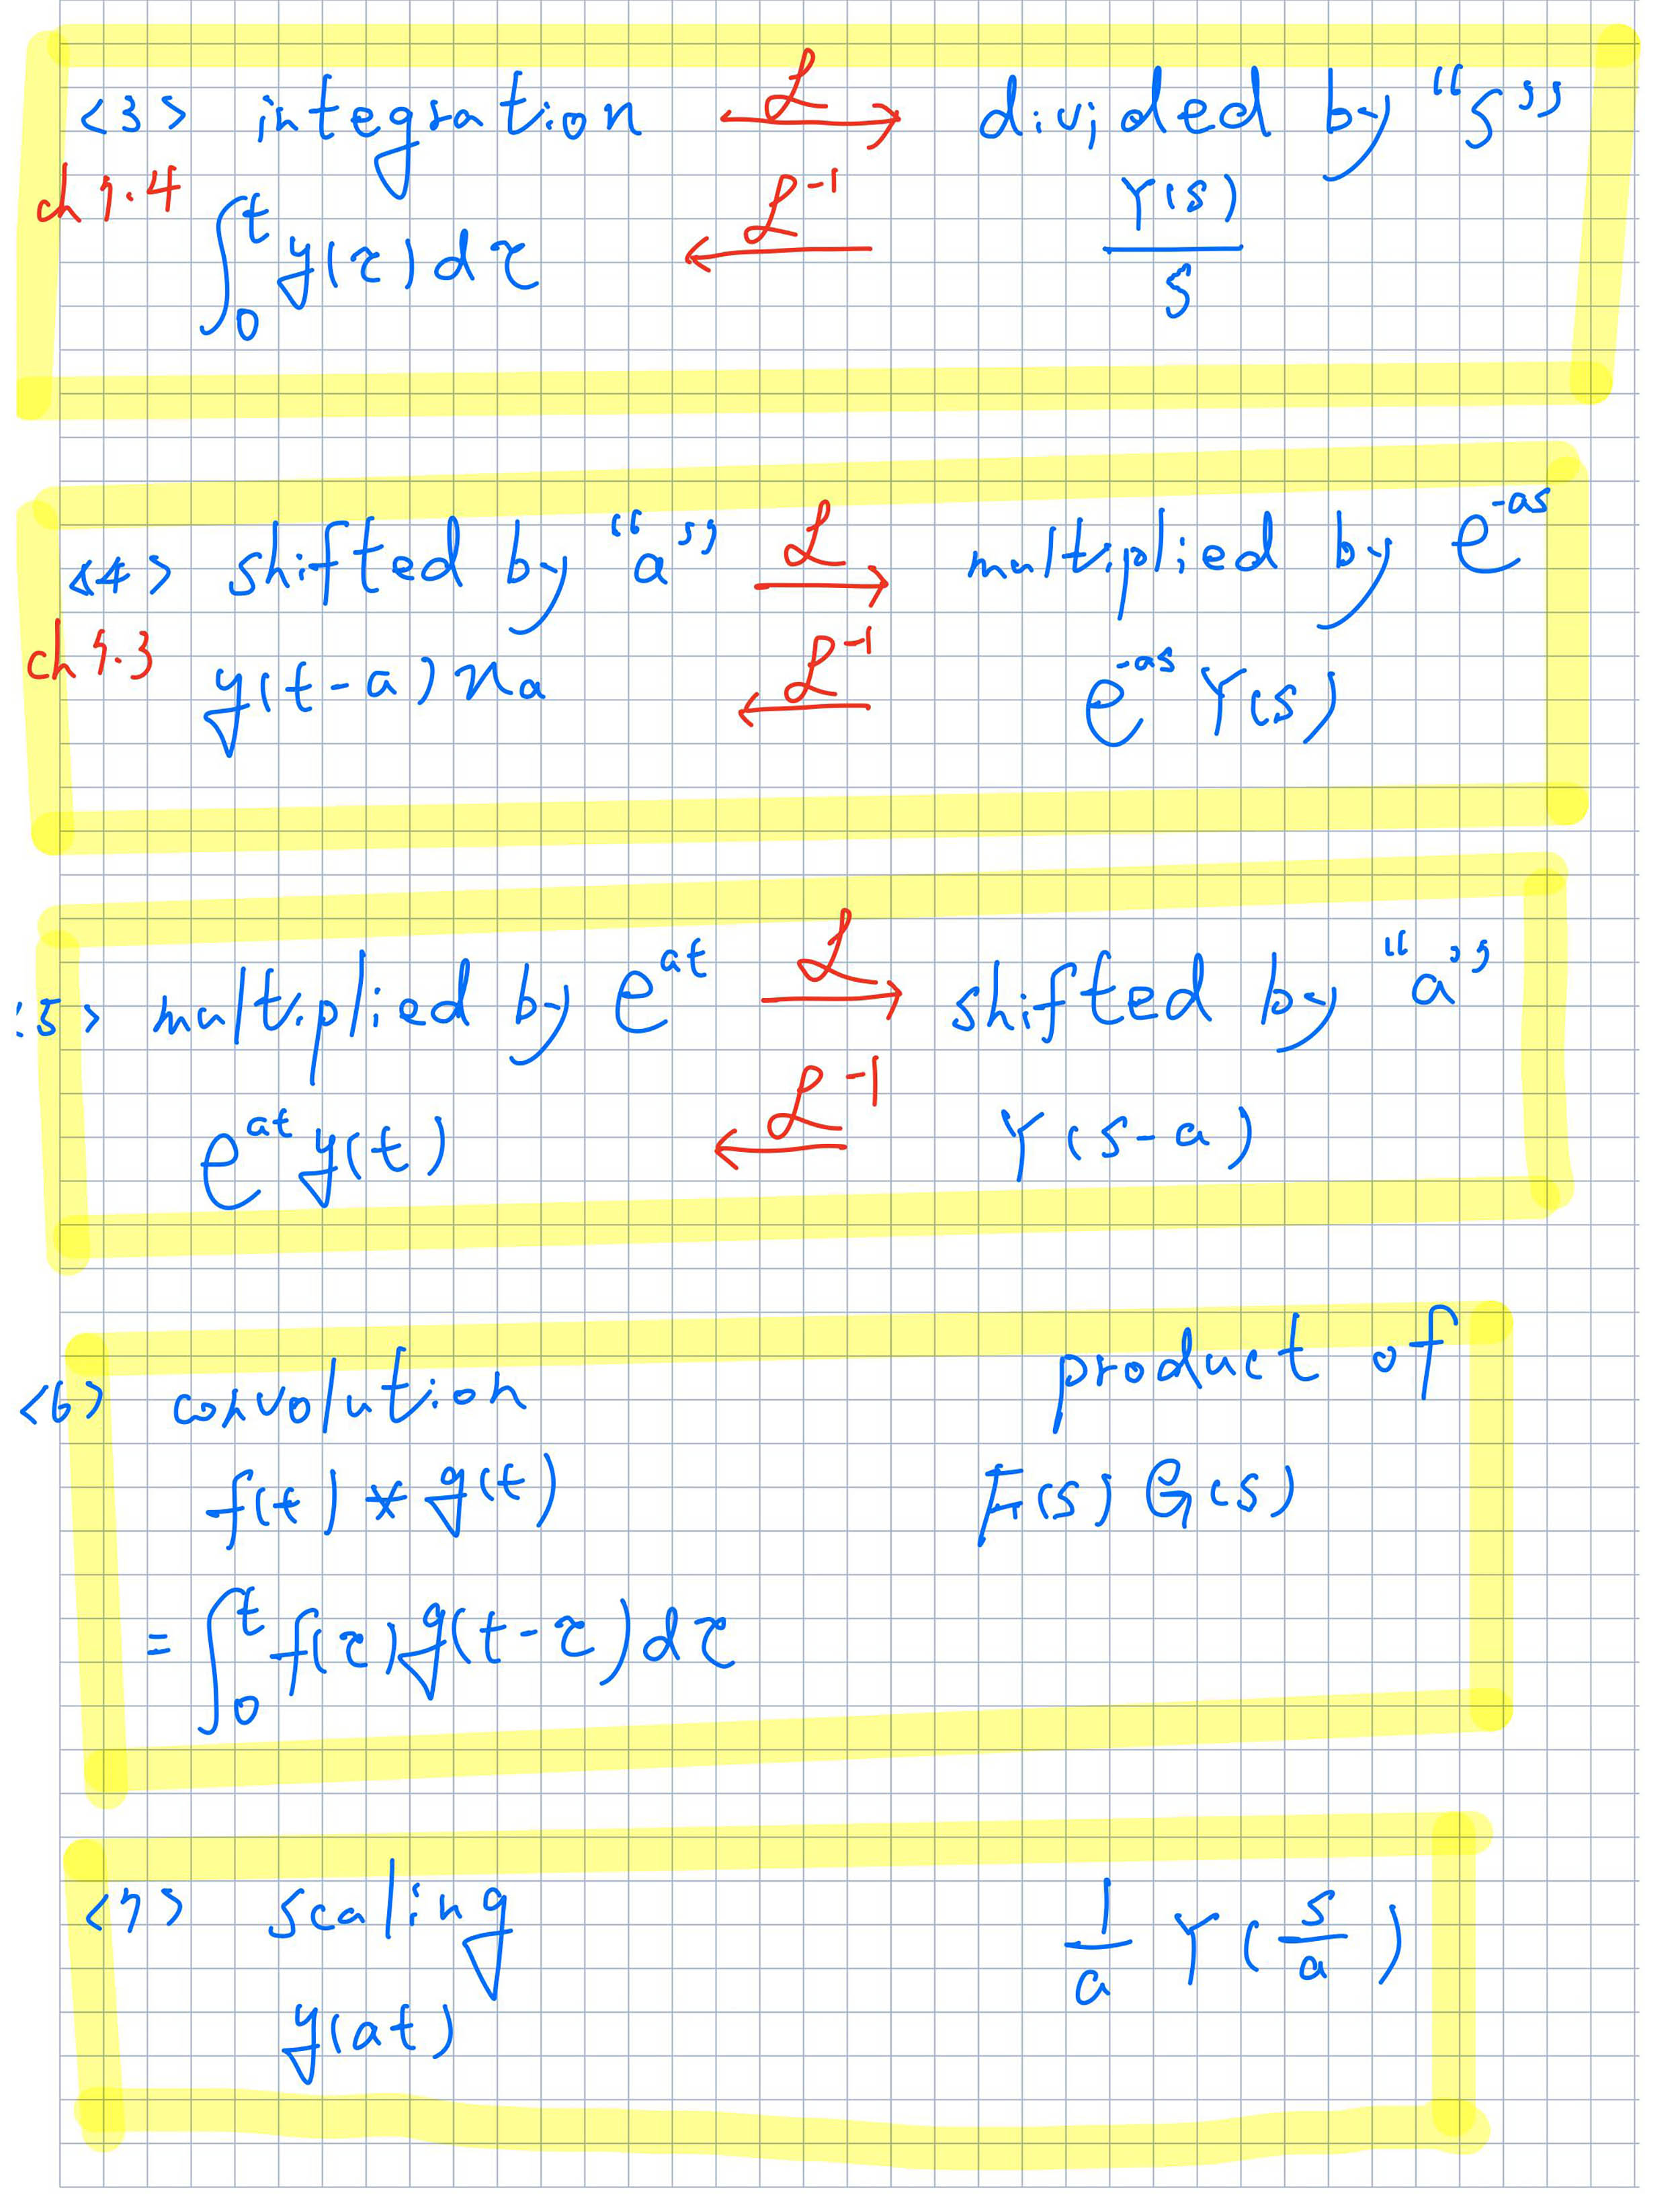 <3> integration ℒ divided by "s"
ch 7.4 ℒ⁻¹ Y(s)/s
∫₀ᵗ y(τ)dτ
<4> shifted by "a" ℒ multiplied by e^{-as}
ch 7.3 y(t-a)u_a ℒ⁻¹ e^{-as} Y(s)
<5> multiplied by e^{at} ℒ shifted by "a"
e^{at} y(t) ℒ⁻¹ Y(s-a)
<6> convolution product of
f(t) * g(t) F(s) G(s)
= ∫₀ᵗ f(τ)g(t-τ)dτ
<7> scaling 1/a Y(s/a)
y(at)